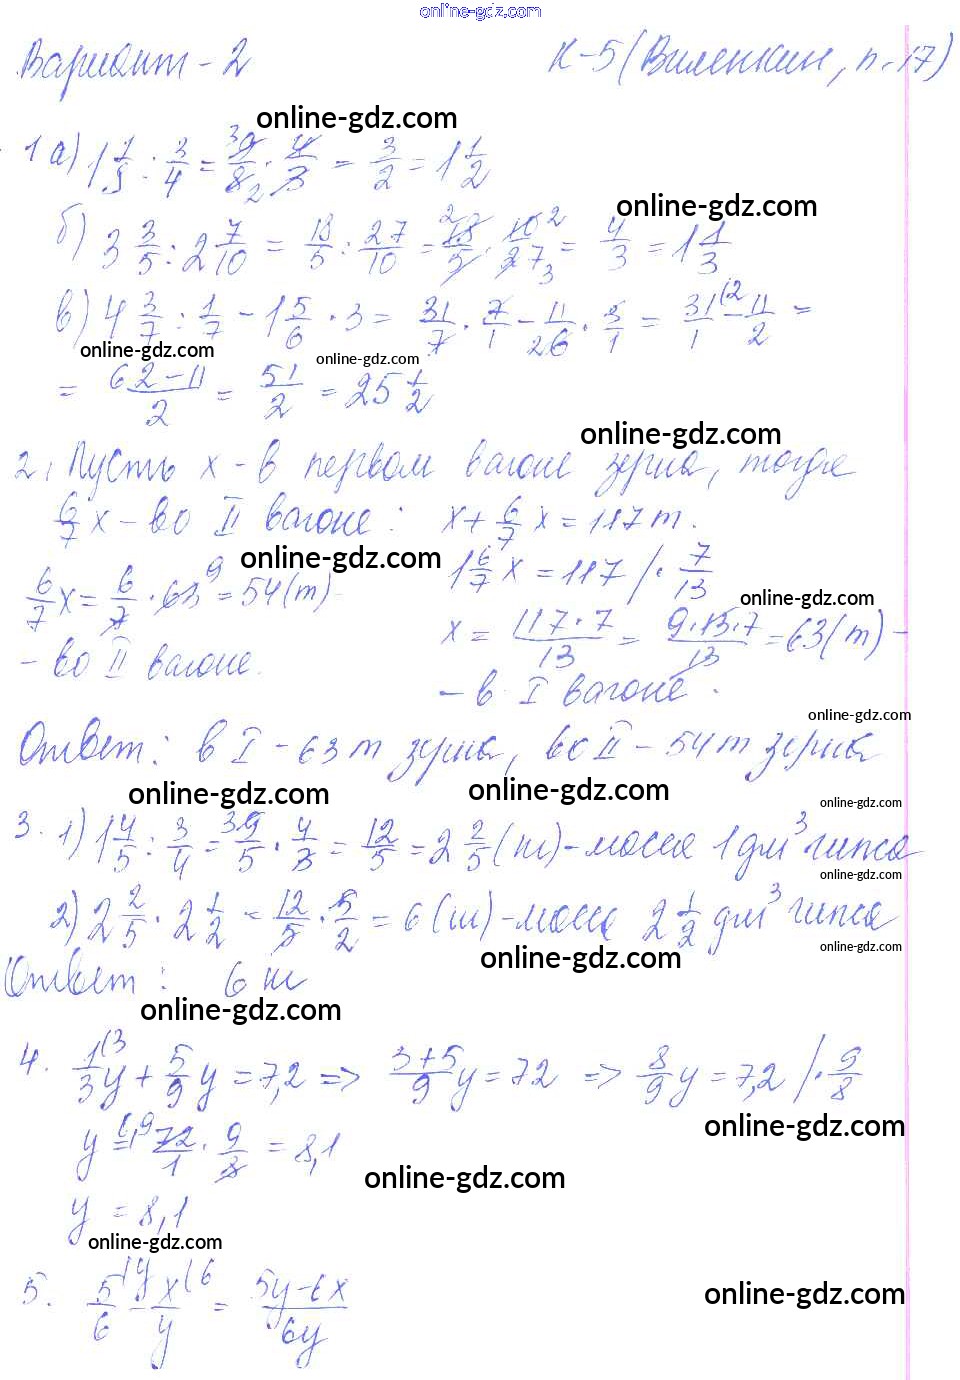 online-gdz.com
Вариант - 2 К-5 (Виленкин, п. 17)
online-gdz.com
1 а) 1 1/8 : 3/4 = 9/8 · 4/3 = 3/2 = 1 1/2
online-gdz.com
б) 3 3/5 : 2 7/10 = 18/5 : 27/10 = 18/5 · 10/27 = 4/3 = 1 1/3
в) 4 3/7 : 1/7 - 1 5/6 · 3 = 31/7 · 7/1 - 11/26 · 3/1 = 31/1 - 11/2 =
online-gdz.com online-gdz.com
= 62-11/2 = 51/2 = 25 1/2
online-gdz.com
2. Пусть х - в первом вагоне зерна, тогда
6/7 х - во II вагоне: х + 6/7 х = 117 т.
online-gdz.com
1 6/7 х = 117 / · 7/13
6/7 х = 6/7 · 63 = 54 (т) -
online-gdz.com
х = 117 · 7/13 = 9 · 13 · 7/13 = 63 (т) -
- во II вагоне.
- в I вагоне.
online-gdz.com
Ответ: в I - 63 т зерна, во II - 54 т зерна
online-gdz.com online-gdz.com
online-gdz.com
3. 1) 1 4/5 : 3/4 = 9/5 · 4/3 = 12/5 = 2 2/5 (кг) - масса 1 дм³ гипса
online-gdz.com
2) 2 2/5 · 2 1/2 = 12/5 · 5/2 = 6 (кг) - масса 2 1/2 дм³ гипса
online-gdz.com
online-gdz.com
Ответ: 6 кг
online-gdz.com
4. 1/3 у + 5/9 у = 7,2 => 3+5/9 у = 72 => 8/9 у = 7,2 / · 9/8
online-gdz.com
у = 72/1 · 9/8 = 8,1
online-gdz.com
у = 8,1
online-gdz.com
5. 5/6 - х/у = 5у-6х/6у
online-gdz.com